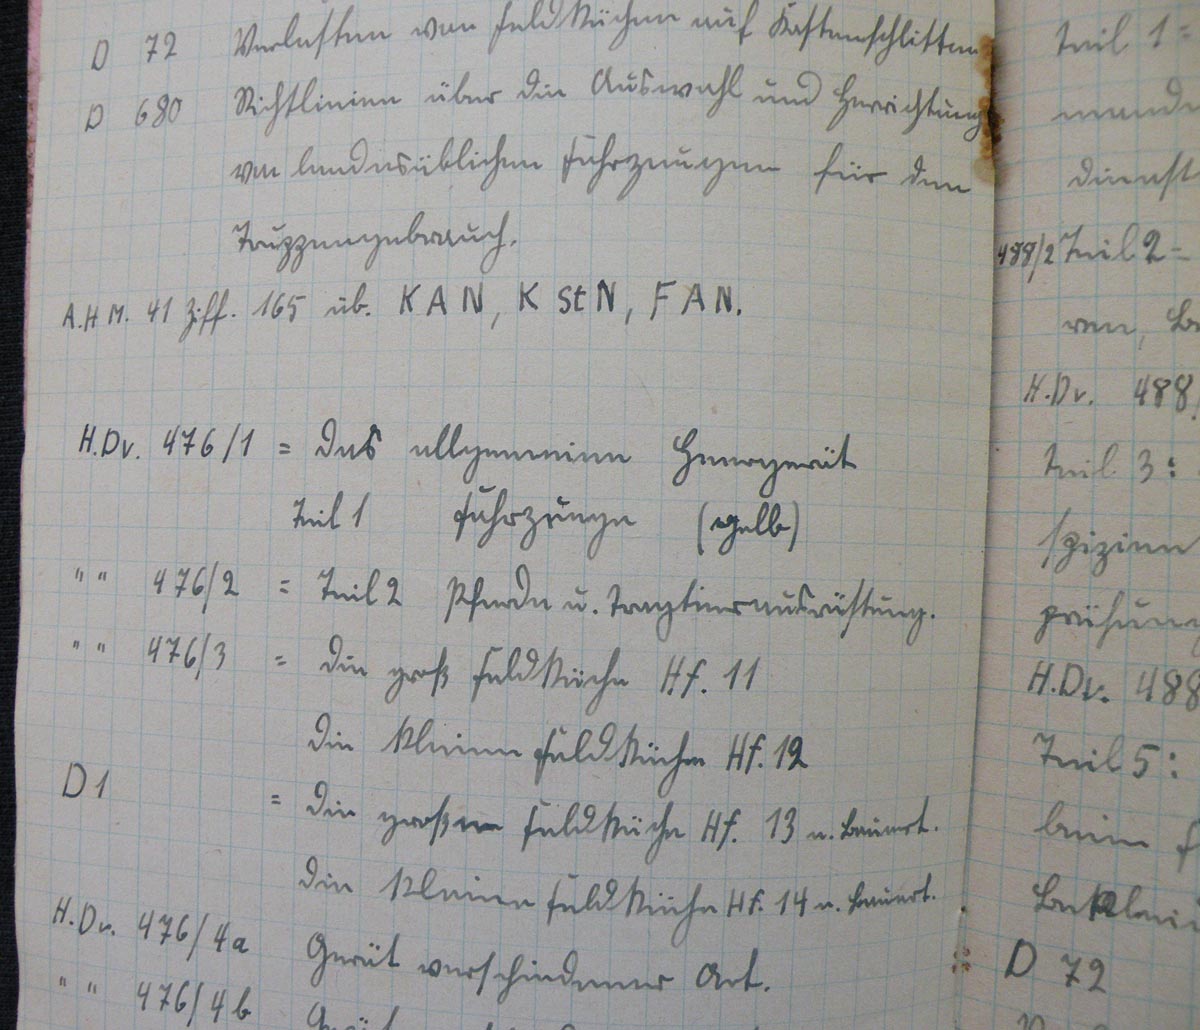 D 72 Verlasten von Feldküchen auf Kastenschlitten
D 680 Richtlinien über die Auswahl und Herrichtung
von landesüblichen Fahrzeugen für den
Truppengebrauch.
A.H.M. 41 Ziff. 165 üb. KAN, K St N, FAN.
H.Dv. 476/1 = Das allgemeine Heergerät
Teil 1 Fahrzeuge (gelb)
" " 476/2 = Teil 2 Pferde u. Tragtierausrüstung.
" " 476/3 = die groß Feldküche Hf. 11
die kleine Feldküche Hf. 12
D 1 = die große Feldküche Hf. 13 n. Bauart.
die kleine Feldküche Hf. 14 n. Bauart.
H.Dv. 476/4a Gerät verschiedener Art.
" " 476/4b Gerät
Teil 1 =
dienst
488/2 Teil 2 =
ren,
H.Dv. 488
Teil 3:
H.Dv. 488
Teil 5:
beim
D 72